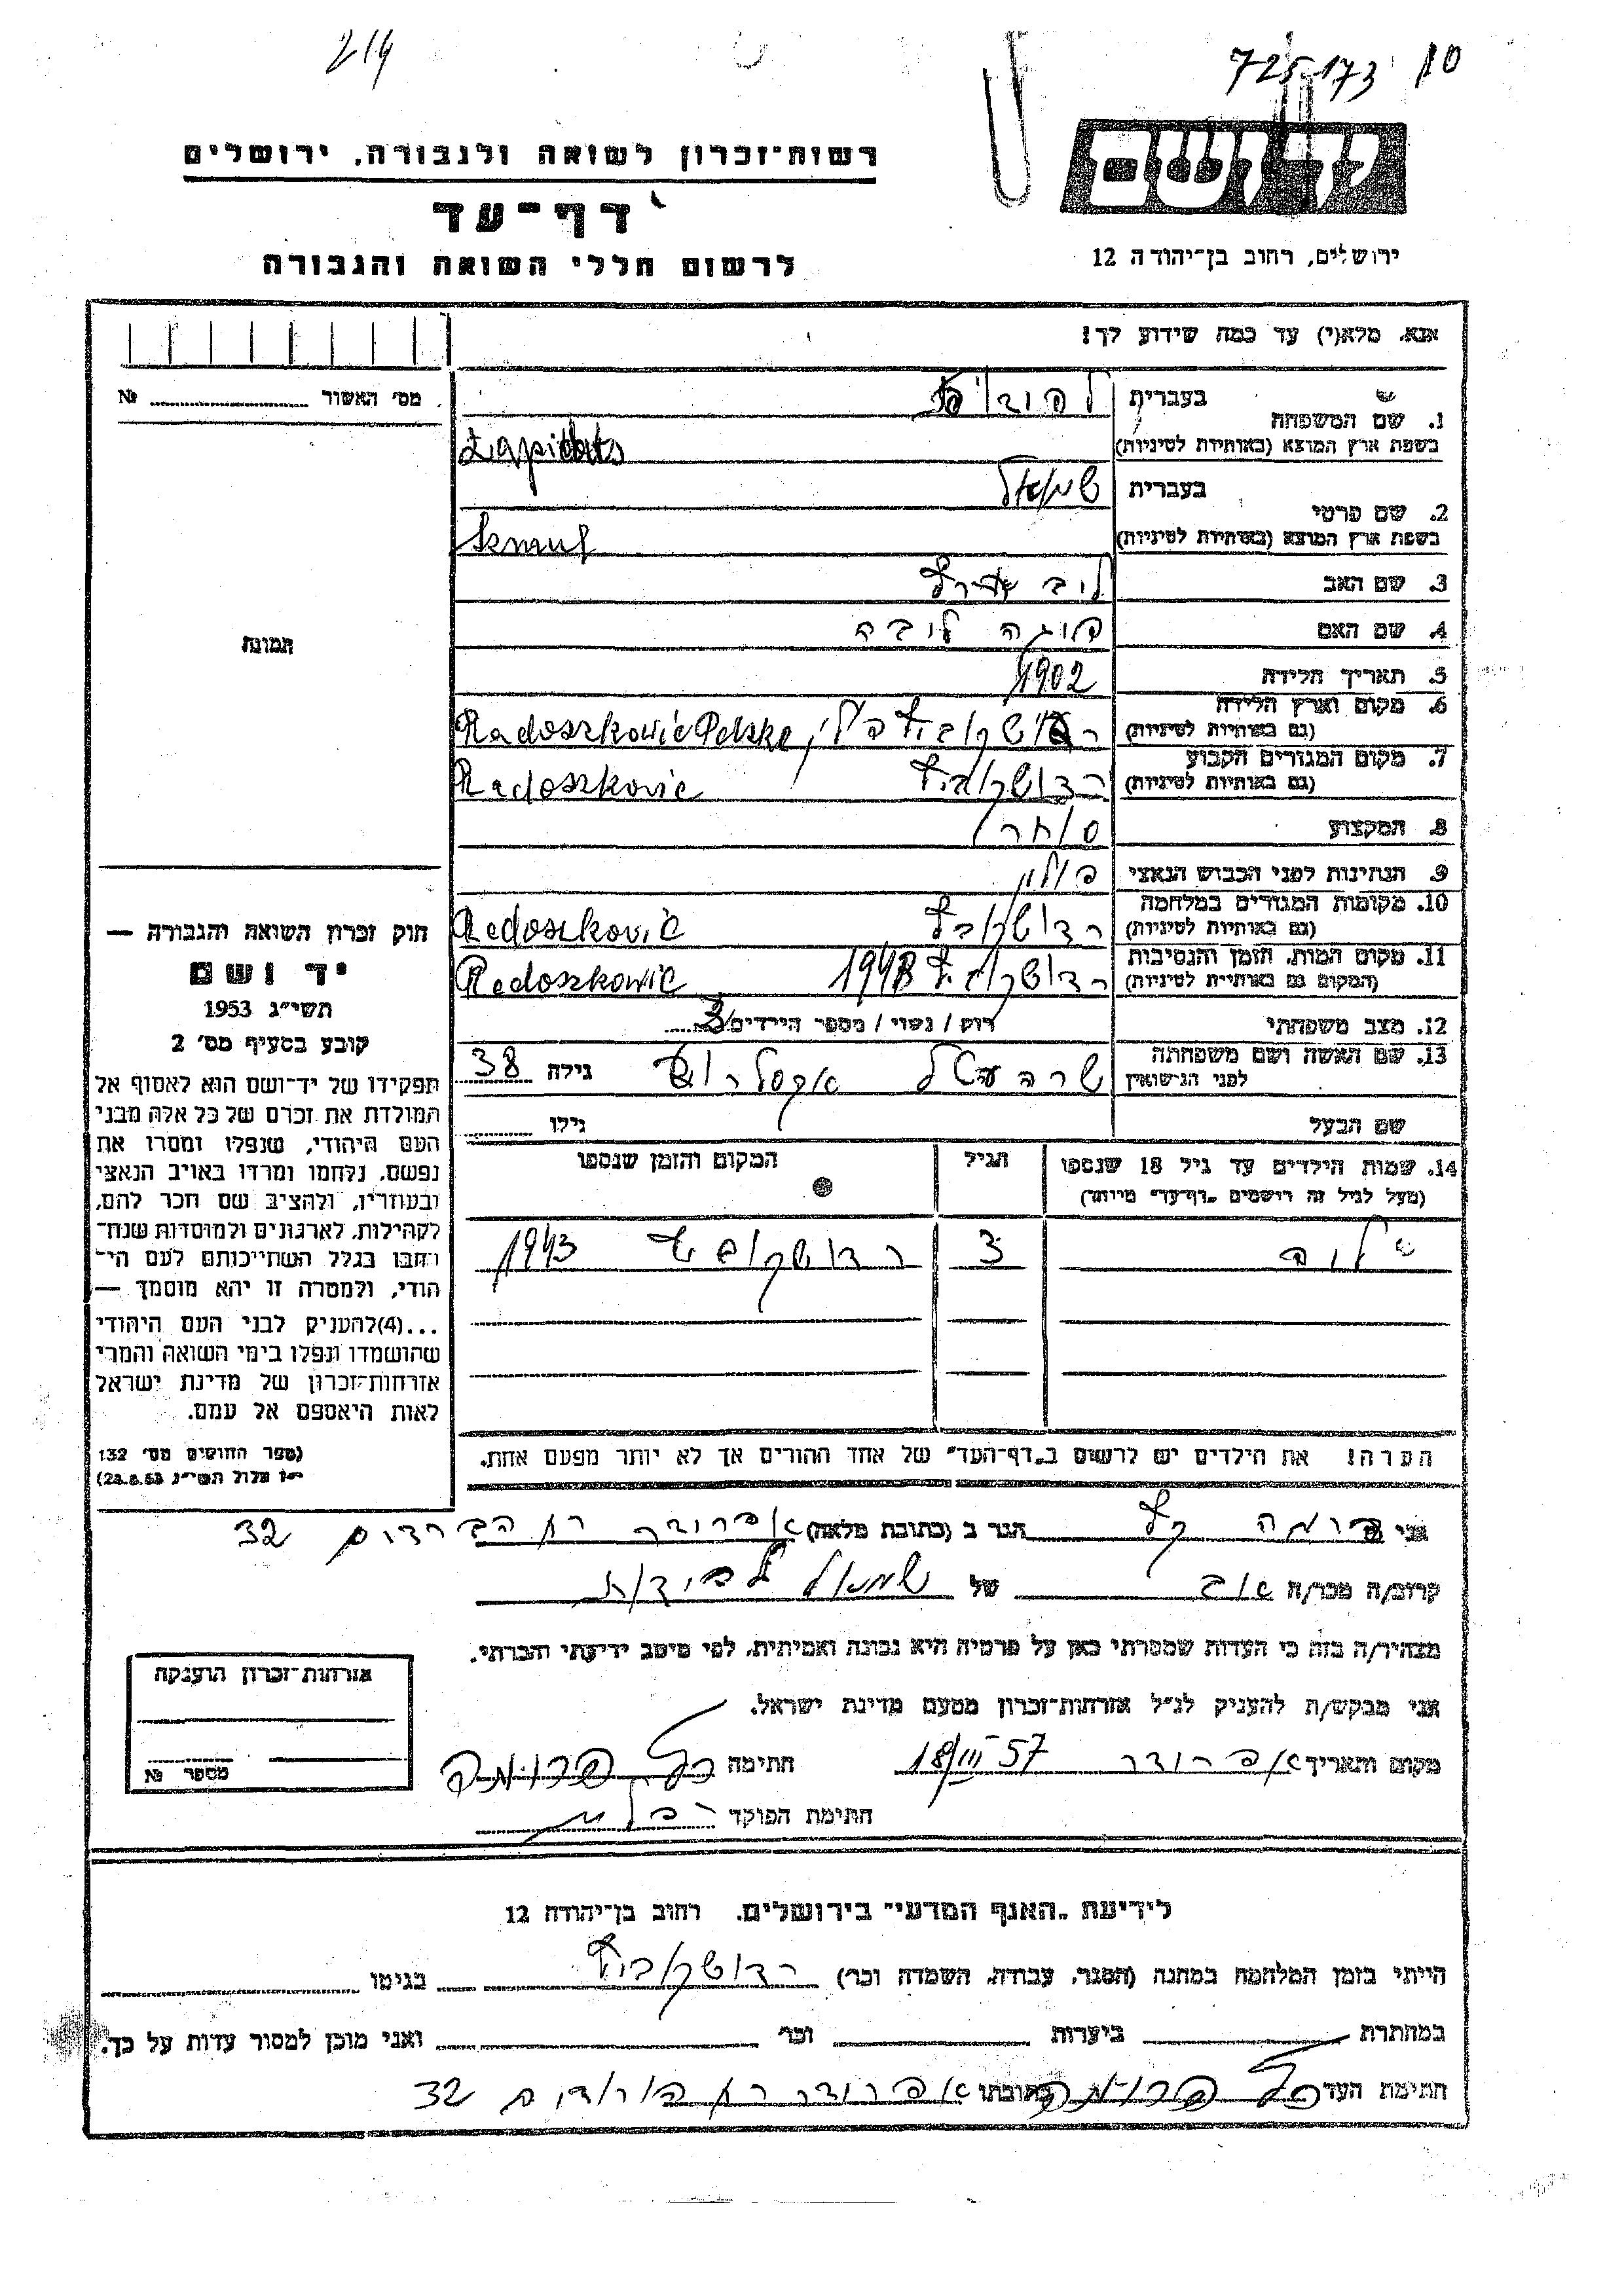 214
725-173 10
יד ושם
רשות־זכרון לשואה ולגבורה, ירושלים
דף־עד
לרשום חללי השואה והגבורה
ירושלים, רחוב בן־יהודה 12
אנא, מלא(י) עד כמה שידוע לך!
מס׳ האשור № 
1. שם המשפחה
בעברית
בשפת ארץ המוצא (באותיות לטיניות) Łapidots
2. שם פרטי
בעברית שמואל
בשפת ארץ המוצא (באותיות לטיניות) Szmul
3. שם האב ליב
4. שם האם ליבה
5. תאריך הלידה 1902
6. מקום וארץ הלידה
(גם באותיות לטיניות) Radoszkowic Polska
7. מקום המגורים הקבוע
(גם באותיות לטיניות) רדושקוביץ Radoszkowic
8. המקצוע סוחר
9. הנתינות לפני הכבוש הנאצי פולין
10. מקומות המגורים במלחמה
(גם באותיות לטיניות) רדושקוביץ Radoszkowic
11. מקום המות, הזמן והנסיבות
(המקום גם באותיות לטיניות) רדושקוביץ Radoszkowic
12. מצב משפחתי רוק / נשוי / מספר הילדים 3
13. שם האשה ושם משפחתה
לפני הנישואין שרה אקסלרוד גילה 38
שם הבעל גילו
14. שמות הילדים עד גיל 18 שנספו
(מעל לגיל זה רושמים „דף־עד״ מיוחד)
הגיל
המקום והזמן שנספו
3 רדושקוביץ 1943
הערה! את הילדים יש לרשום ב„דף־העד״ של אחד ההורים אך לא יותר מפעם אחת.
תמונה
חוק זכרון השואה והגבורה —
יד ושם
תשי״ג 1953
קובע בסעיף מס׳ 2
תפקידו של יד־ושם הוא לאסוף אל
המולדת את זכרם של כל אלה מבני
העם היהודי, שנפלו ומסרו את
נפשם, נלחמו ומרדו באויב הנאצי
ובעוזריו, ולהציב שם וזכר להם,
לקהילות, לארגונים ולמוסדות שנח־
רבו בגלל השתייכותם לעם הי־
הודי, ולמטרה זו יהא מוסמך —
...(4) להעניק לבני העם היהודי
שהושמדו ונפלו בימי השואה והמרי
אזרחות־זכרון של מדינת ישראל
לאות היאספם אל עמם.
(ספר החוקים מס׳ 132
י״ז אלול תשי״ג 28.8.53)
אני פרומה הגר ב (כתובת מלאה) 32
קרוב/ה מכר/ה של שמואל לפידות
מצהיר/ה בזה כי העדות שמסרתי כאן על פרטיה היא נכונה ואמיתית, לפי מיטב ידיעתי והכרתי.
אני מבקש/ת להעניק לנ״ל אזרחות־זכרון מטעם מדינת ישראל.
מקום ותאריך 18/III 57 חתימה
חתימת הפוקד
אזרחות־זכרון הוענקה
מספר №
לידיעת „האגף המדעי״ בירושלים, רחוב בן־יהודה 12
הייתי בזמן המלחמה במחנה (הסגר, עבודה, השמדה וכו׳) רדושקוביץ בגיטו
במחתרת ביערות וכו׳ ואני מוכן למסור עדות על כך.
חתימת העד כתובתו 32